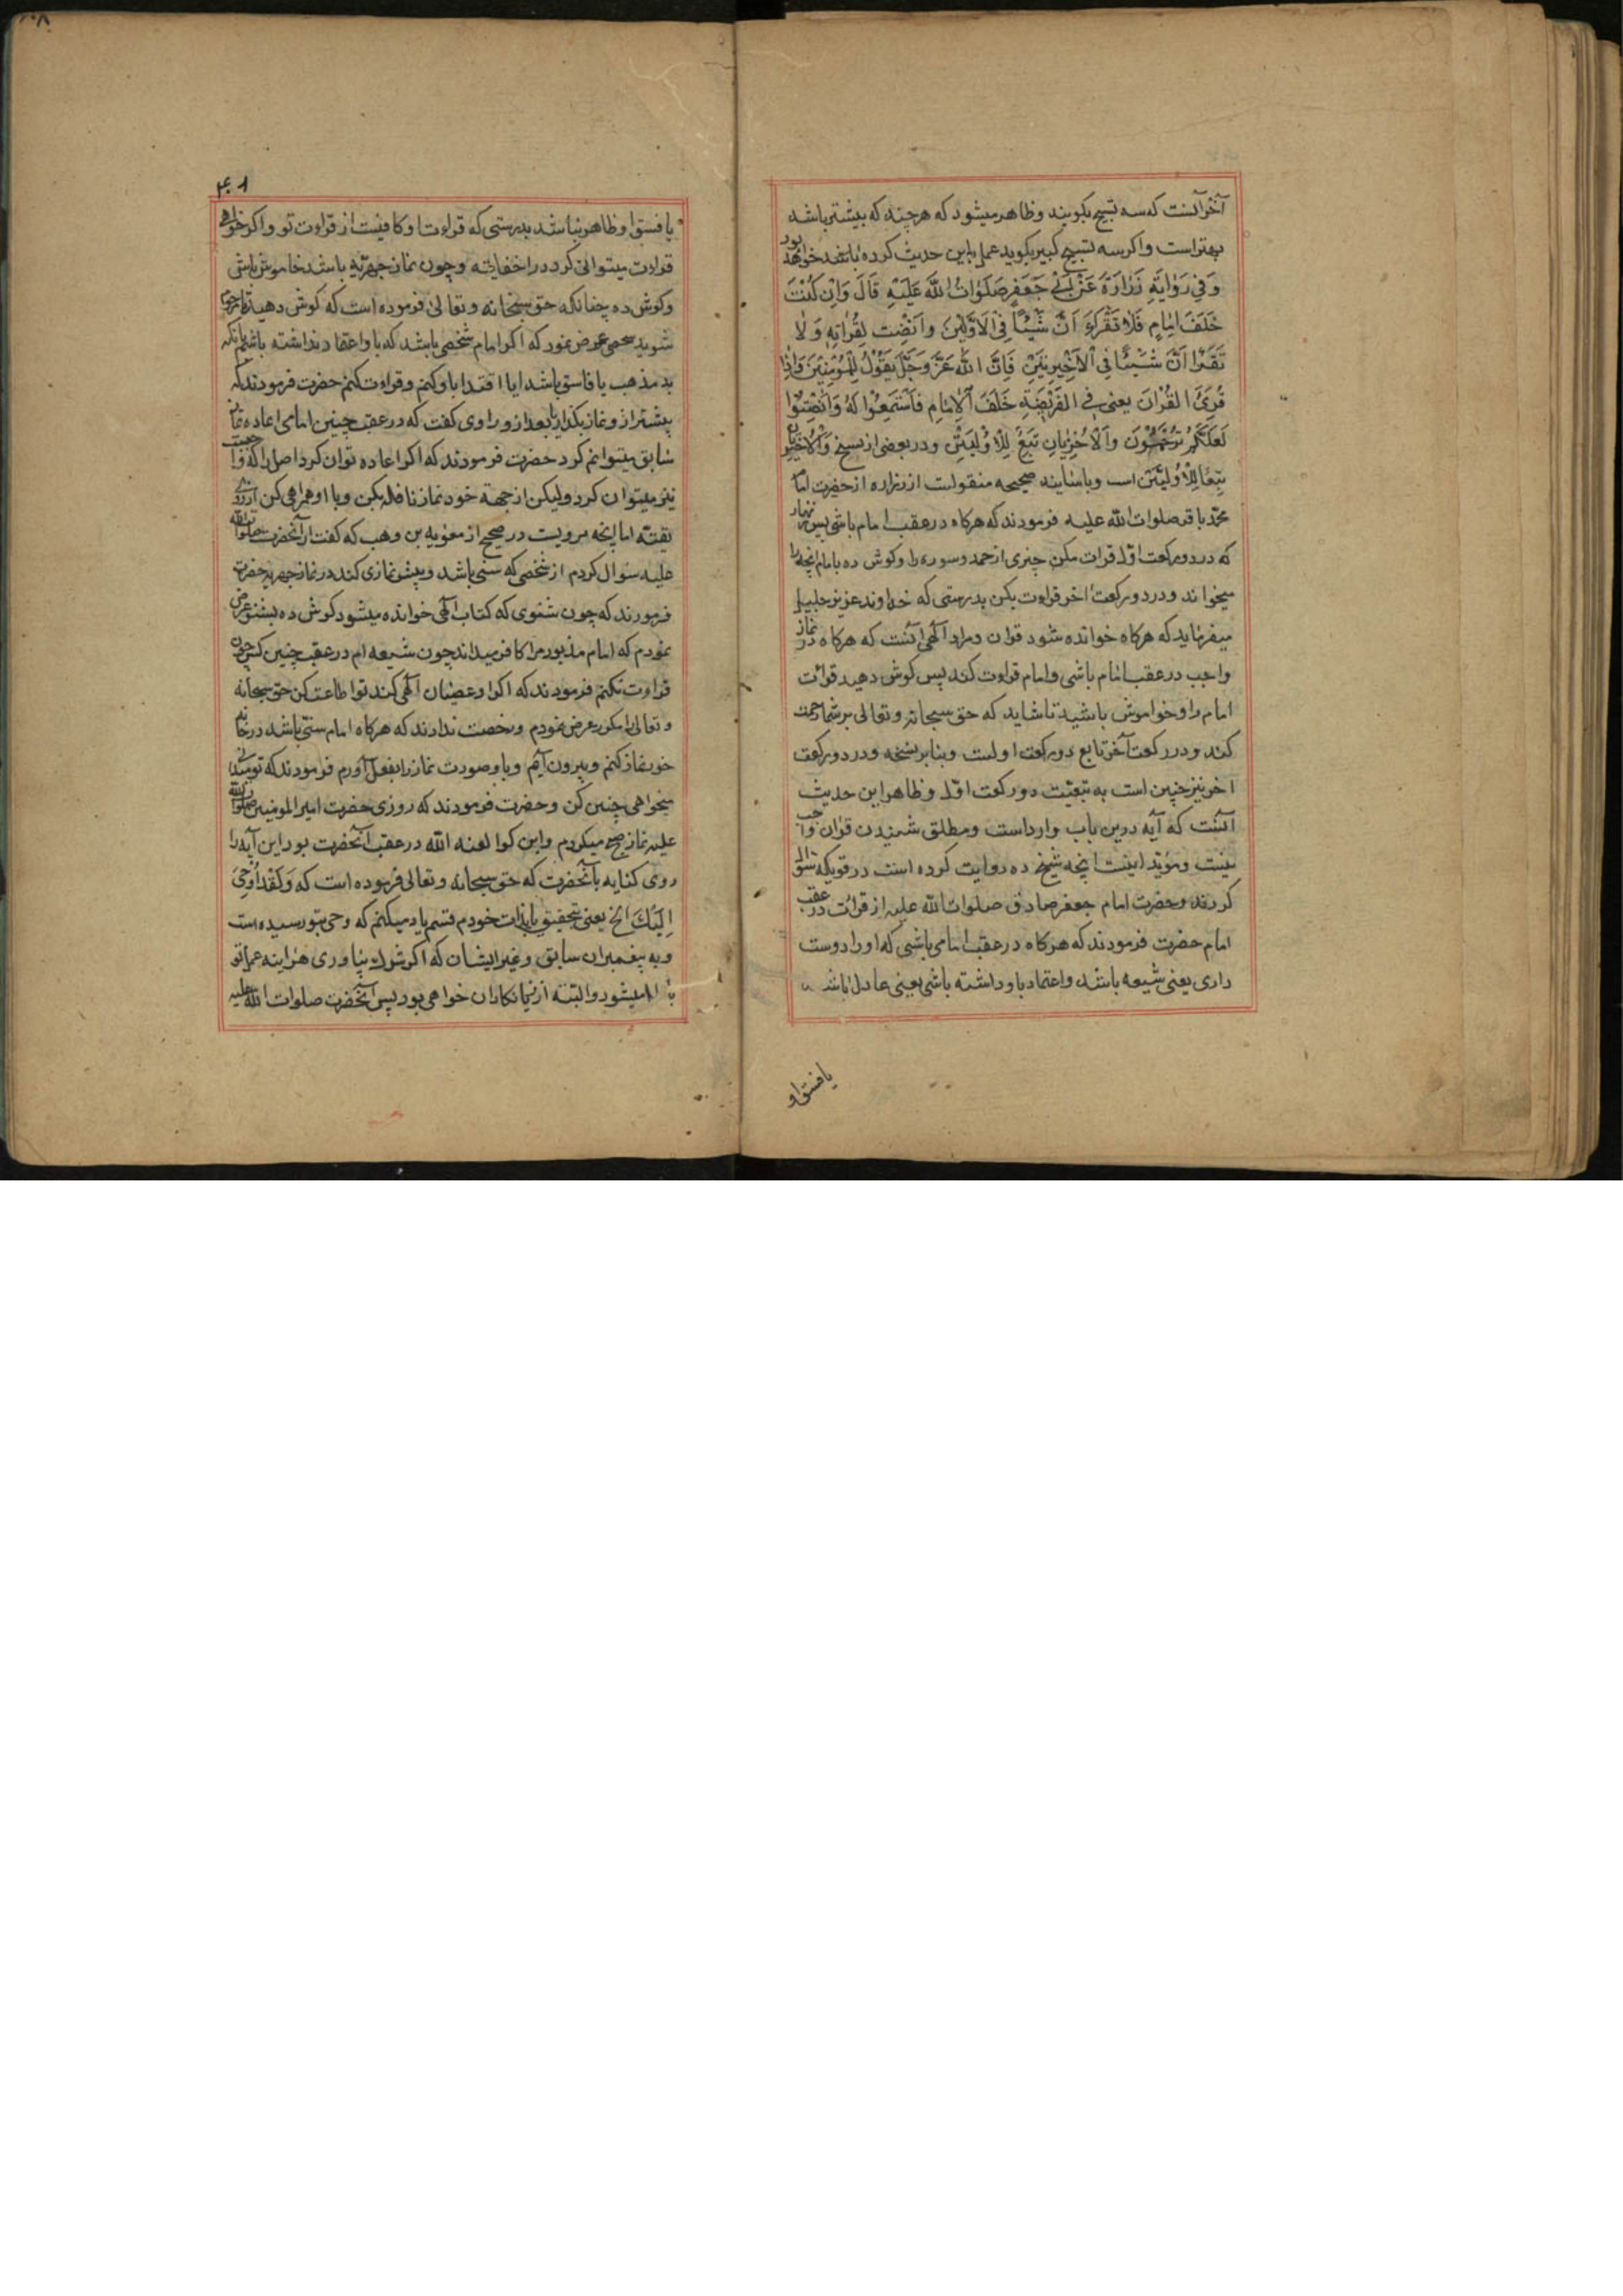 آخر آنست که سه تسبیح بکویند و ظاهر میشود که هر چند که بیشتر باشد
بهتر است و اکر سه تسبیح کبیر بکوید عمل باین حدیث کرده باشد خواهد بود
وَفِي رَوٰايَةِ زُرٰارَةَ عَنْ أَبِي جَعَفَرٍ صَلَوٰاتُ اللّهَ عَلَيْهِ قٰالَ وَاِن كُنْتَ
خَلَفَ اِمٰامٍ فَلاٰ تَقْرَأَنَّ شَيْئاً فِي الاَوَّلَيْنَ وَاَنْصِت لِقُرٰاتِهِ وَلاٰ
تَقَرأَنَّ شَيْئًا فِي الْاَخِيرتَيَنِ فَاِنَّ اللّٰهَ عَزَّ وَجَلَّ يَقُوْلُ لِلْمُؤمِنِيْنَ وَاِذٰا
قُرِئَ القُرْاٰنَ يعنى فِي الفَرْيْضَةِ خَلَفَ الاِمٰامِ فَاسْتَمِعُوْا لَهُ وَاَنْصِتُوْا
لَعَلَّكُمْ تُرْحَمُوْنَ وَالْاَخِيْرتَانِ تَبَعٌ لِلْاُوْلَيَتَيْنِ و در بعضی از نسخ وَالْاَخِيْرَتٰانِ
تِبَعًا لِلْاُولَيَتَيْنَ است و باسانید صحیحه منقولست از زراره از حضرت امام
محمد باقر صلوات الله علیه فرمودند که هرکاه در عقب امام باشی پس زنهار
که در دو رکعت اول قرات مکن چیزی از حمد و سوره را و کوش ده بامام انچه را
میخواند و در دو رکعت اخر قراءت مکن بدرستی که خداوند عزیز جلیل
میفرماید که هرکاه خوانده شود قران و مراد الهی انست که هرکاه در نماز
واجب در عقب امام باشی و امام قراءت کند پس کوش دهید قرائت
امام را و خواموش باشید تا شاید که حق سبحانه و تعالی بر شما رحمت
کند و در رکعت آخر تابع دو رکعت اولست و بنابر نسخه و در دو رکعت
اخر نیز چنین است به تبعیّت دو رکعت اوّل و ظاهر این حدیث
آنست که آیه درین باب وارد است و مطلق شنیدن قران واجب
نیست و مؤید اینست انچه شیخ ره روایت کرده است در قوی که سؤال
کردند حضرت امام جعفر صادق صلوات الله علیه از قرائت در عقب
امام حضرت فرمودند که هرکاه در عقب امامی باشی که او را دوست
داری یعنی شیعه باشد و اعتماد باو داشته باشی یعنی عادل باشد
یا فسق او
۴۰۱
یا فسق او ظاهر نباشد بدرستی که قراءت او کافیست از قراءت تو و اکر خواهی
قراءت میتوانی کرد در اخفاتیه و چون نماز جهریّه باشد خاموش باش
و کوش ده چنانکه حق سبحانه و تعالی فرموده است که کوش دهید
شوید شخصی عرض نمود که اکر امام شخصی باشد که باو اعتقاد نداشته باشم بانکه
بد مذهب یا فاسق باشد ایا اقتدا باو کنم و قراءت کنم حضرت فرمودند که
پیشتر ازو نماز بکذار یا بعد ازو راوی کفت که در عقب چنین امامی اعاده نماز
سابق میتوانم کرد حضرت فرمودند که اکر اعاده توان کرد اصل را که واجبست
نیز میتوان کرد ولیکن از جهة خود نماز نافله بکن و با او همراهی کن از روی
تقیّه اما انچه مرویست در صحیح از معویه بن وهب که کفت از آنحضرت صلوات الله
علیه سؤال کردم از شخصی که سنی باشد و پیش نمازی کند در نماز جهریه حضرت
فرمودند که چون شنوی که کتاب الهی خوانده میشود کوش ده بشنو عرض
نمودم که امام مذبور مرا کافر میداند چون شیعه ام در عقب چنین کس چون
قراءت نکنم فرمودند که اکر او عصیان الهی کند تو اطاعت کن حق سبحانه
و تعالی را مکرر عرض نمودم و رخصت ندادند که هرکاه امام سنّی باشد در خانه
خود نماز کنم و بیرون آیم و باو صورت نماز را بفعل آورم فرمودند که تو میدانی
میخواهی چنین کن و حضرت فرمودند که روزی حضرت امیر المومنین صلوات الله
علیه نماز صبح میکردم و ابن کوا لعنه الله در عقب آنحضرت بود این آیه را
روی کنایه بآنحضرت که حق سبحانه و تعالی فرموده است که وَلَقَدْ اُوْحِيَ
اِلَيْكَ الخ یعنی بتحقیق بذات خودم قسم یاد میکنم که وحی بتو رسیده است
و به پیغمبران سابق و غیر ایشان که اکر شرک بیاوری هر اینه عمل تو
باطل میشود و البته از زیانکاران خواهی بود پس آنحضرت صلوات الله علیه